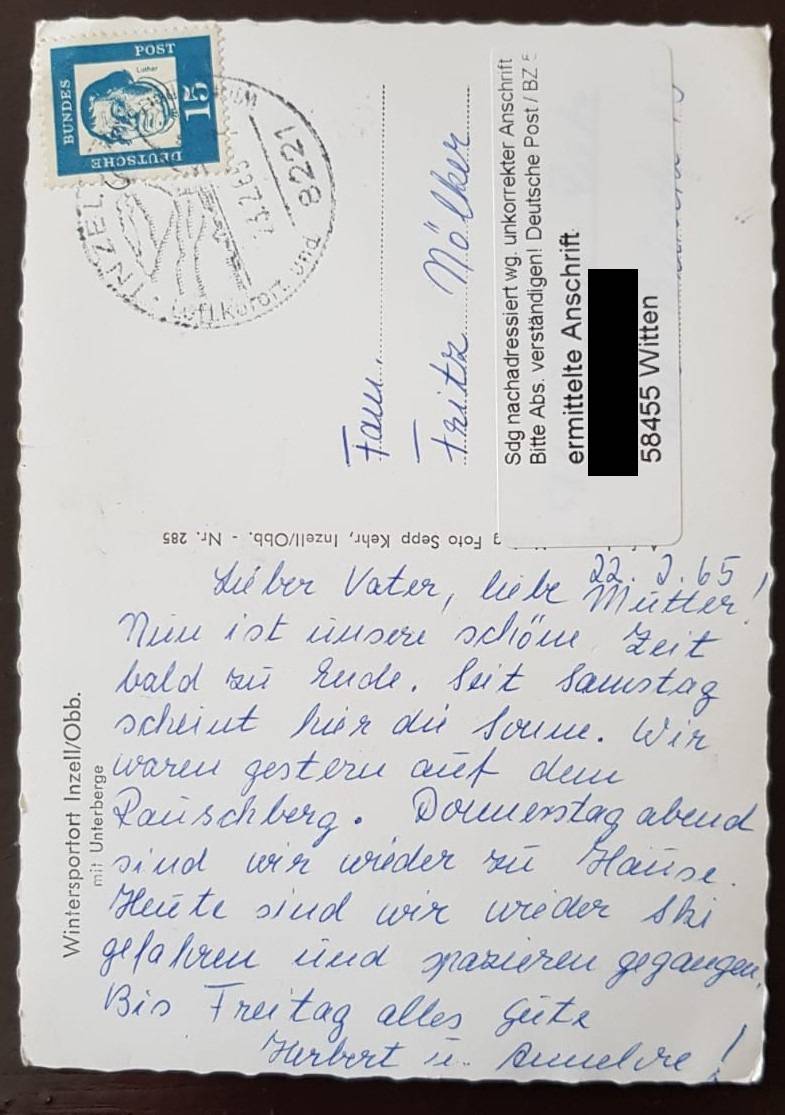 DEUTSCHE
BUNDES
POST
Luther
15
INZELL
Luftkurort und
23.2.65
8221
Fam.
Fritz Nölker
Sdg nachadressiert wg. unkorrekter Anschrift
Bitte Abs. verständigen! Deutsche Post / BZ
ermittelte Anschrift
58455 Witten
g Foto Sepp Kehr, Inzell/Obb. - Nr. 285
Wintersportort Inzell/Obb.
mit Unterberge
22. 2. 65
Lieber Vater, liebe Mutter!
Nun ist unsere schöne Zeit
bald zu Ende. Seit Samstag
scheint hier die Sonne. Wir
waren gestern auf dem
Rauschberg. Donnerstag abend
sind wir wieder zu Hause.
Heute sind wir wieder Ski
gefahren und spazieren gegangen.
Bis Freitag alles Gute
Herbert u. Annelore!